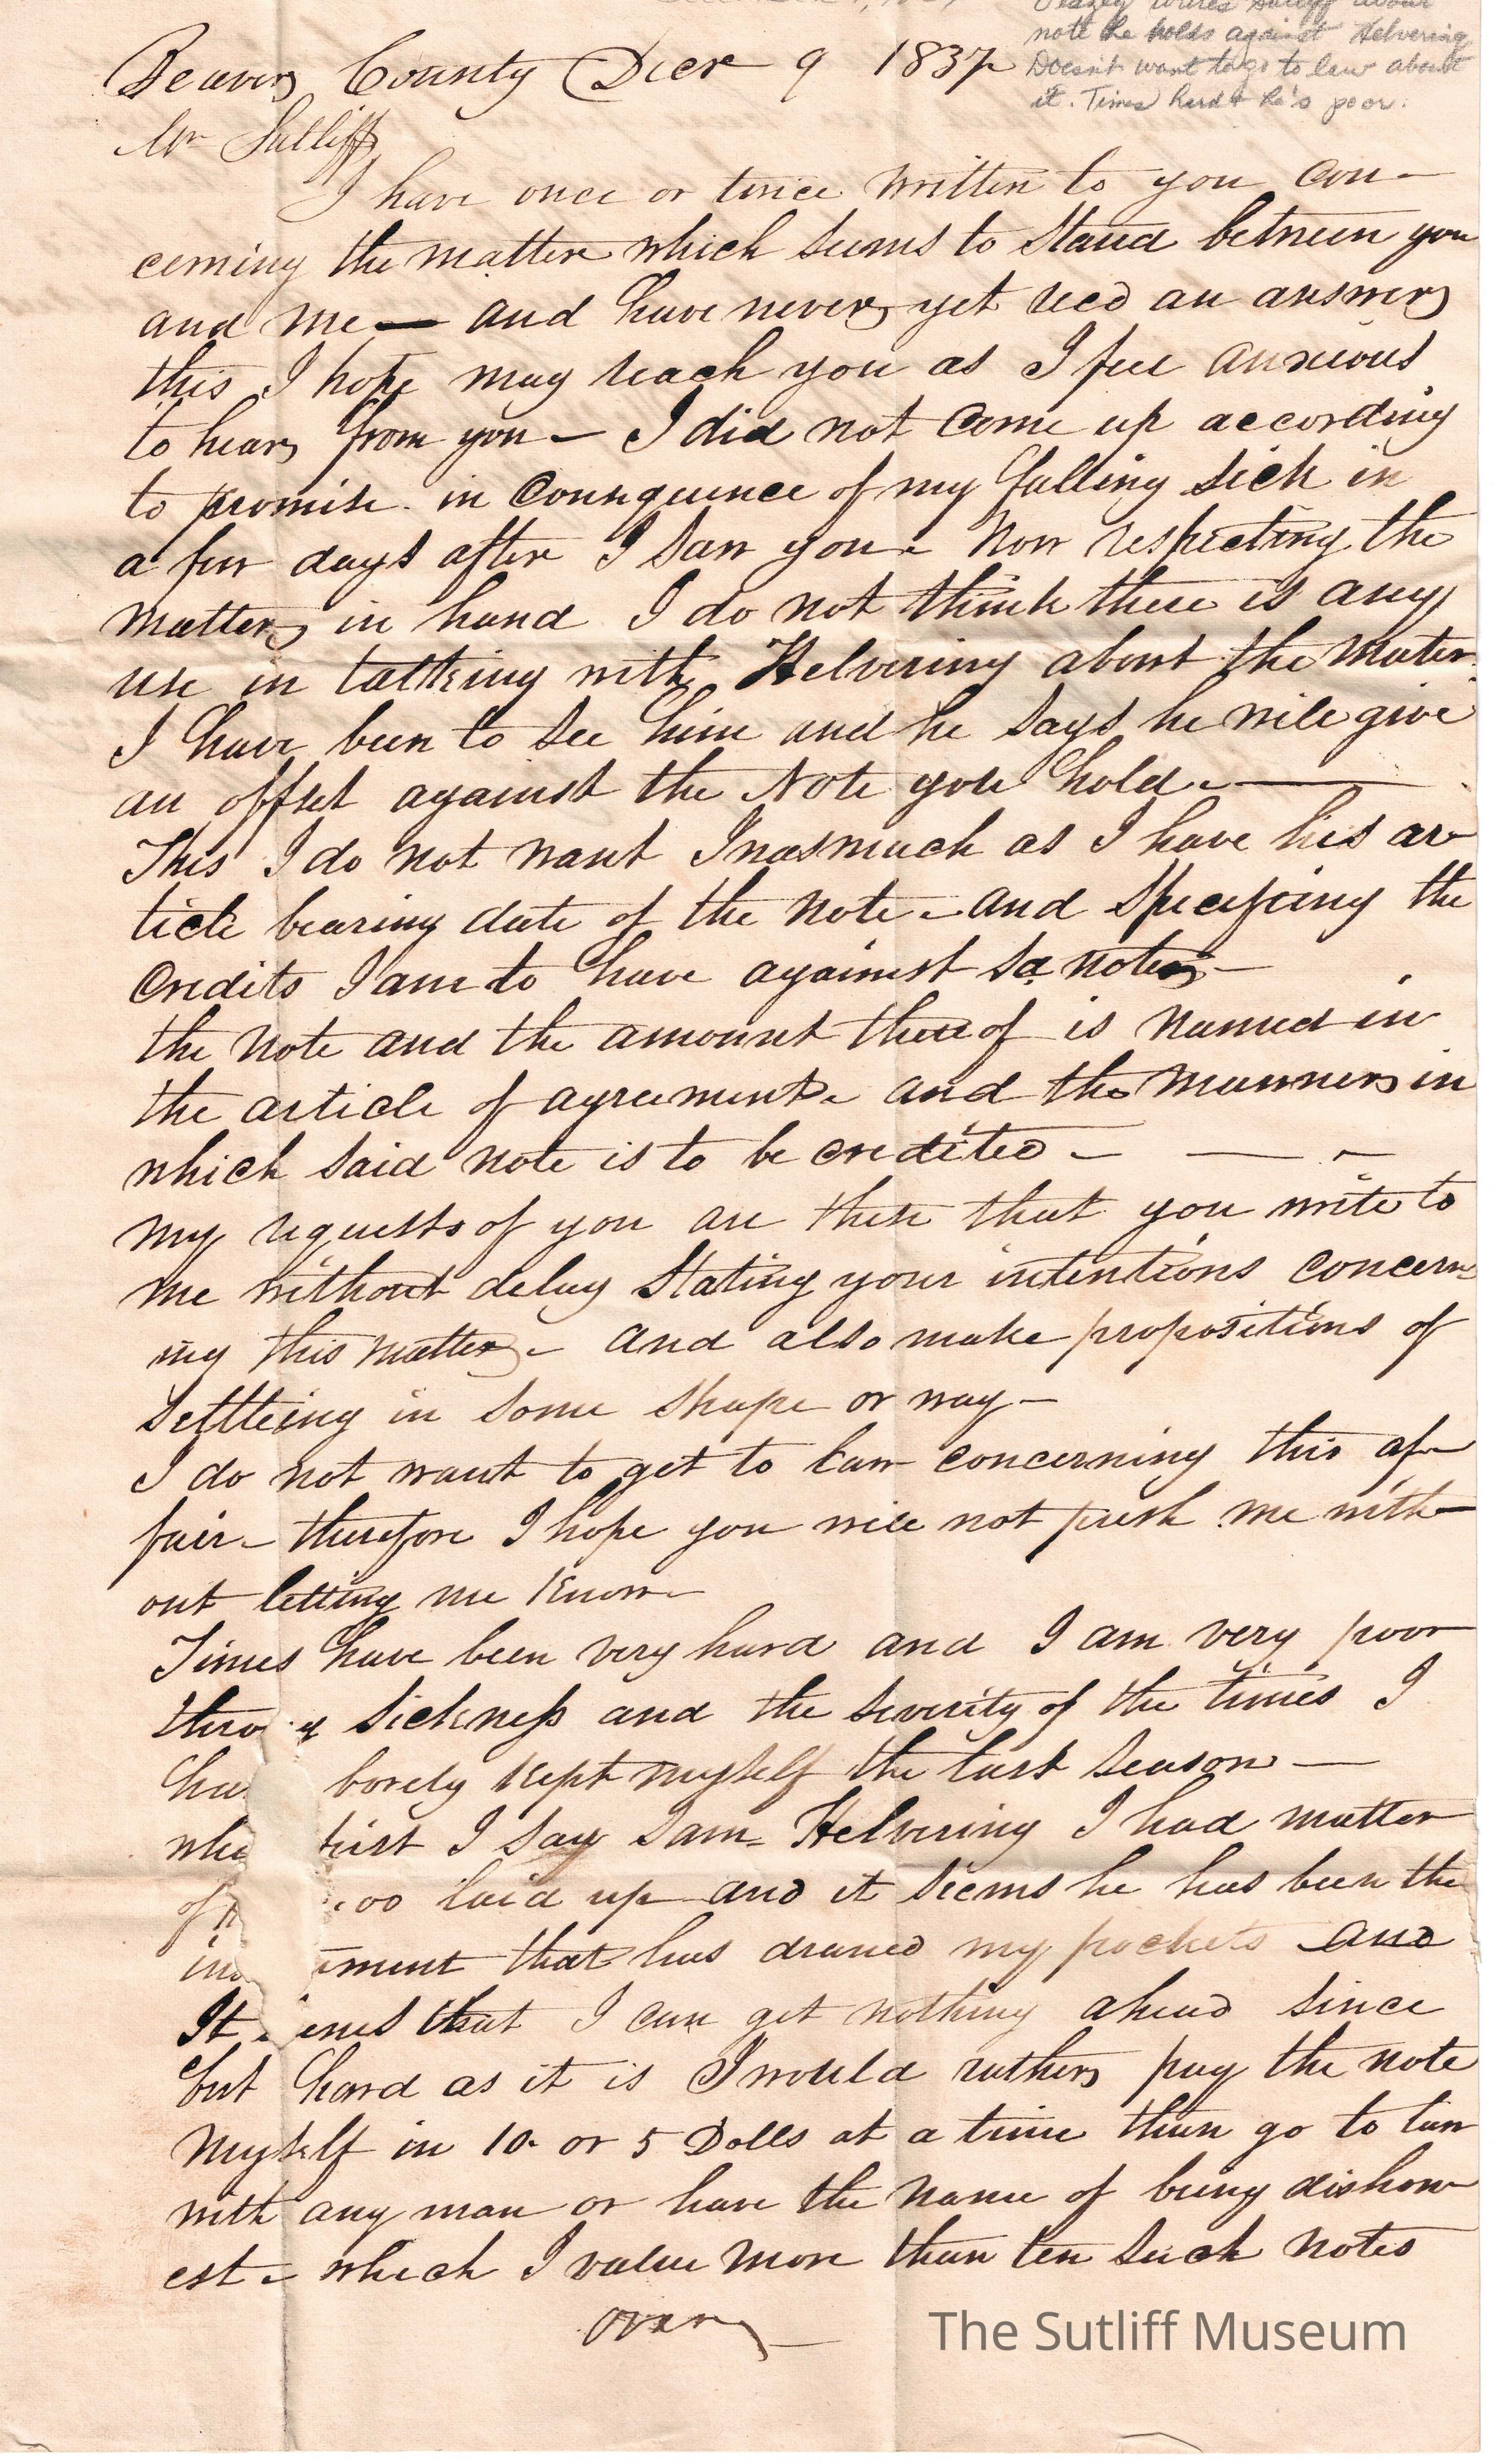 note he holds against Helvering
Doesn't want to go to law about
it. Times hard & he's poor.
Beaver County Decr 9 1837
Mr Sutliff
I have once or twice written to you con-
cerning the matter which seems to stand between you
and me — and have never yet recd an answer
this I hope may reach you as I feel anxious
to hear from you — I did not come up according
to promise. in consequence of my falling sick in
a few days after I saw you. Now respecting the
matter in hand I do not think there is any
use in talking with Helvering about the matter.
I have been to see him and he says he will give
an offset against the Note you hold. —
This I do not want Inasmuch as I have his ar-
ticle bearing date of the note - and specifing the
credits I am to have against sd note —
the note and the amount thereof is named in
the article of agreement - and the manner in
which said note is to be credited - — -
my requests of you are these that you write to
me without delay stating your intentions concern-
ing this matter - and also make propositions of
settleing in some shape or way —
I do not want to get to law concerning this af-
fair - therefore I hope you will not push me with-
out letting me know -
Times have been very hard and I am very poor
thro sickness and the severity of the times I
ha barely kept myself the last season —
whe first I say Sam- Helvering I had matter
of 00 laid up and it seems he has been the
ins ument that has draned my pockets and
It ems that I can get nothing ahead since
but hard as it is I would rather pay the note
myself in 10. or 5 Dolls at a time than go to law
with any man or have the name of being dishon-
est - which I value more than ten such notes
over
The Sutliff Museum